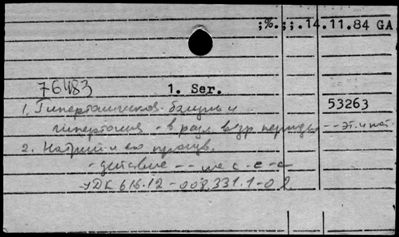 ;%.;;.14.11.84 GA
76483
1. Ser.
1. Гипертоническая болезнь и 53263
гипертония - в разл. возр. периоды -- эт. и пат.
2. Натрий и его произв.
- действие - - на с.-с.-с
УДК 616.12-008.331.1-0